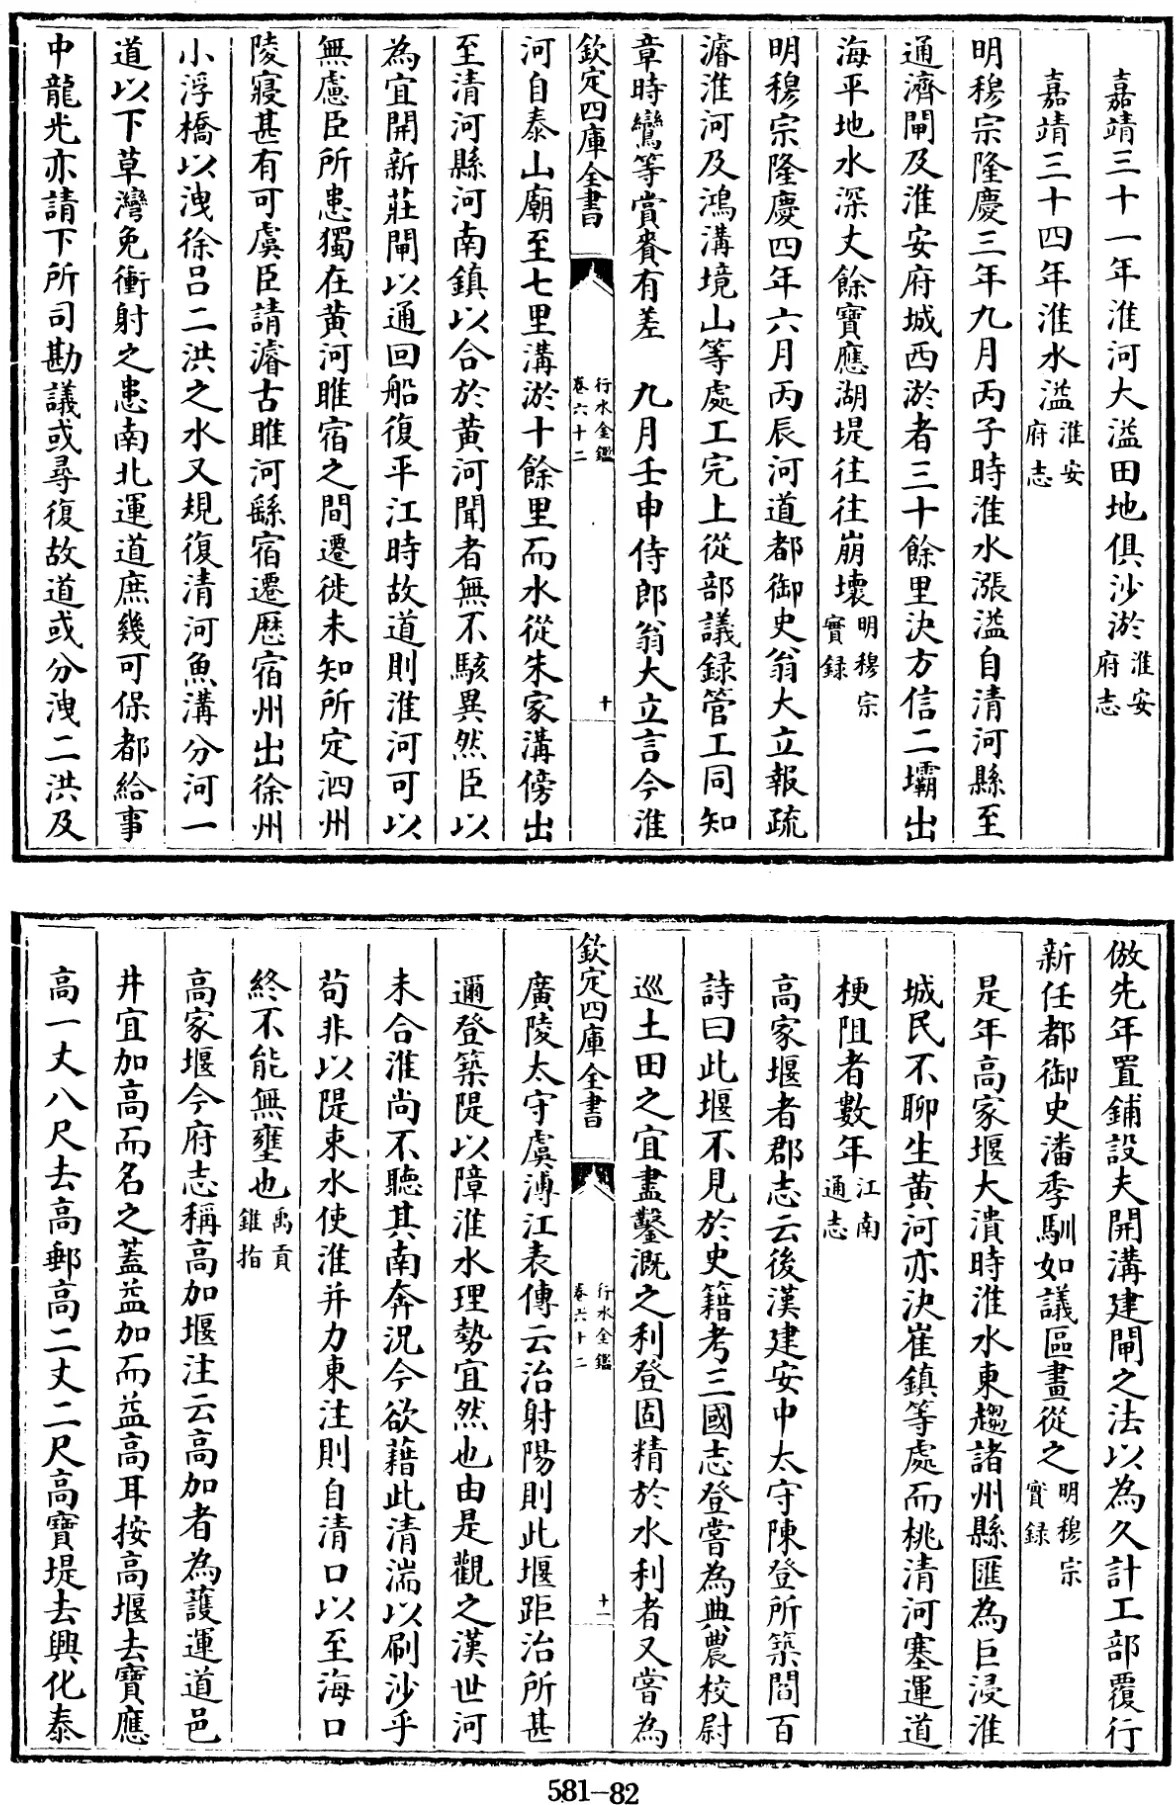 嘉靖三十一年淮河大溢田地俱沙淤淮安府志
嘉靖三十四年淮水溢淮安府志
明穆宗隆慶三年九月丙子時淮水漲溢自清河縣至
通濟閘及淮安府城西淤者三十餘里決方信二壩出
海平地水深丈餘寶應湖堤往往崩壞明穆宗實録
明穆宗隆慶四年六月丙辰河道都御史翁大立報疏
濬淮河及鴻溝境山等處工完上從部議録管工同知
章時鸞等賞賚有差　九月壬申侍郎翁大立言今淮
欽定四庫全書
行水金鑑
卷六十二
十
河自泰山廟至七里溝淤十餘里而水從朱家溝傍出
至清河縣河南鎮以合於黄河聞者無不駭異然臣以
為宜開新莊閘以通回船復平江時故道則淮河可以
無慮臣所患獨在黄河睢宿之間遷徙未知所定泗州
陵寢甚有可虞臣請濬古睢河繇宿遷歷宿州出徐州
小浮橋以洩徐吕二洪之水又規復清河魚溝分河一
道以下草灣免衝射之患南北運道庶幾可保都給事
中龍光亦請下所司勘議或尋復故道或分洩二洪及
倣先年置鋪設夫開溝建閘之法以為久計工部覆行
新任都御史潘季馴如議區畫從之明穆宗實録
是年高家堰大潰時淮水東趨諸州縣匯為巨浸淮
城民不聊生黄河亦決崔鎮等處而桃清河塞運道
梗阻者數年江南通志
高家堰者郡志云後漢建安中太守陳登所築閻百
詩曰此堰不見於史籍考三國志登嘗為典農校尉
巡土田之宜盡鑿溉之利登固精於水利者又嘗為
欽定四庫全書
行水金鑑
卷六十二
十一
廣陵太守虞溥江表傳云治射陽則此堰距治所甚
邇登築隄以障淮水理勢宜然也由是觀之漢世河
未合淮尚不聽其南奔況今欲藉此清湍以刷沙乎
苟非以隄束水使淮并力東注則自清口以至海口
終不能無壅也禹貢錐指
高家堰今府志稱高加堰注云高加者為護運道邑
井宜加高而名之蓋益加而益高耳按高堰去寶應
高一丈八尺去高郵高二丈二尺高寶堤去興化泰
581-82